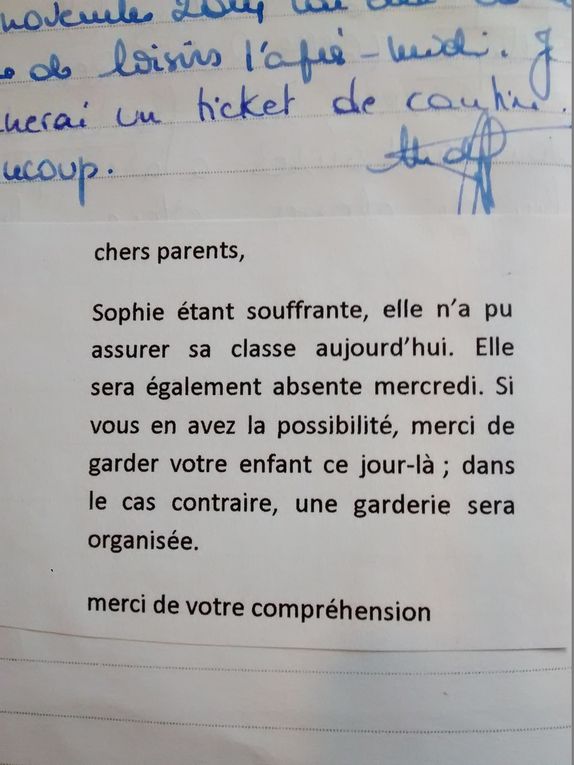 novembre
de loisirs l'après-midi. J
nerai un ticket de cantine.
ucoup.
chers parents,
Sophie étant souffrante, elle n'a pu
assurer sa classe aujourd'hui. Elle
sera également absente mercredi. Si
vous en avez la possibilité, merci de
garder votre enfant ce jour-là ; dans
le cas contraire, une garderie sera
organisée.
merci de votre compréhension